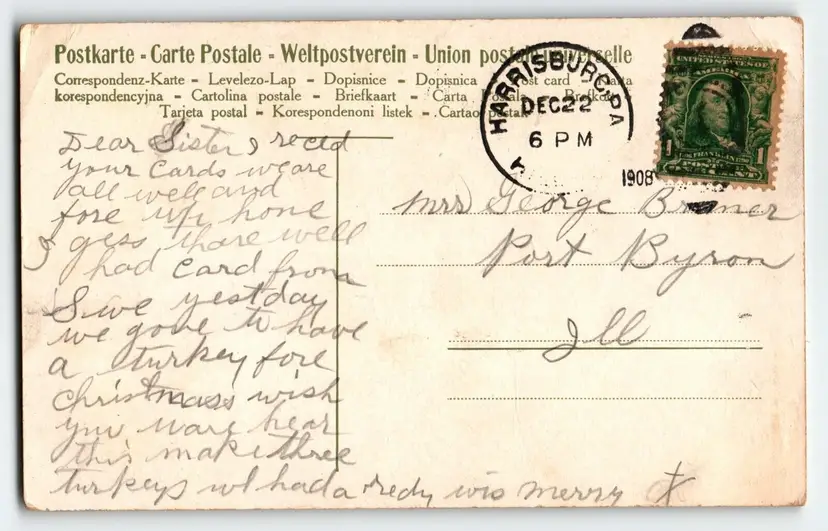 Postkarte - Carte Postale - Weltpostverein - Union postale universelle
Correspondenz-Karte - Levelezo-Lap - Dopisnice - Dopisnica - Post card - Karta
korespondencyjna - Cartolina postale - Briefkaart - Carta postala - Brefkort
Tarjeta postal - Korespondenoni listek - Cartao postal
HARRISBURG, PA
DEC 22
6 PM
1908
UNITED STATES OF
AMERICA
1 FRANKLIN 1
POSTAGE
ONE CENT
Dear Sister I recd
your cards we are
all well and
fore you hone
I gess thare well
had card from
S we yestday
we gove to have
a turkey fore
christmass wish
you ware hear
this make three
turkeys wl had a redy wis merry X
Mrs George Bruner
Port Byron
Ill